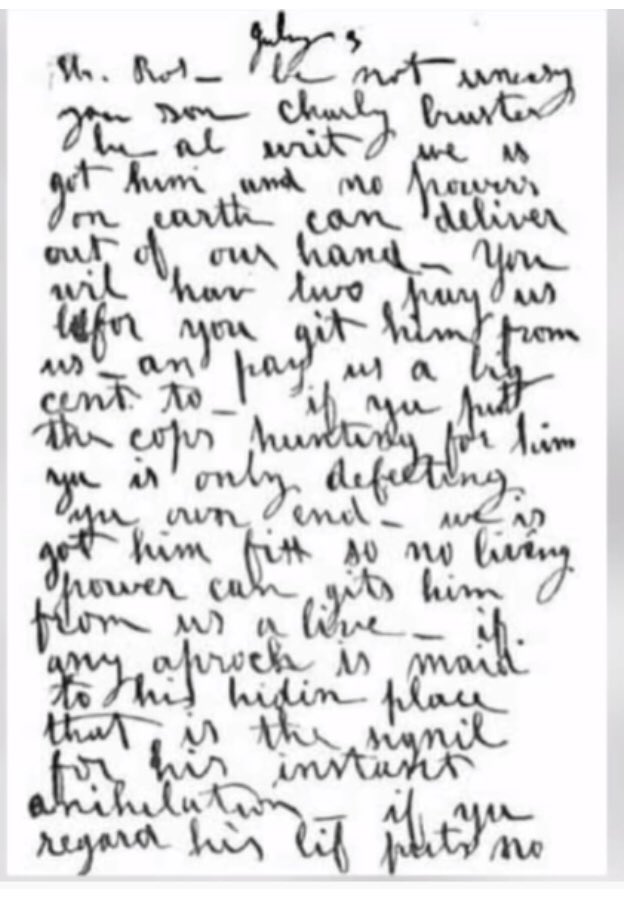 July 3
Mr. Ros_ be not uneasy
you son charly bruster
he al writ we is
got him and no powers
on earth can deliver
out of our hand_ You
wil hav two pay us
befor you git him from
us_ an pay us a big
cent to_ if yu put
the cops hunting for him
yu is only defeeting
yu own end_ we is
got him fitt so no living
power can gits him
from us a live_ if
any aproch is maid
to his hidin place
that is the signil
for his instant
anihilation_ if yu
regard his lif puts no